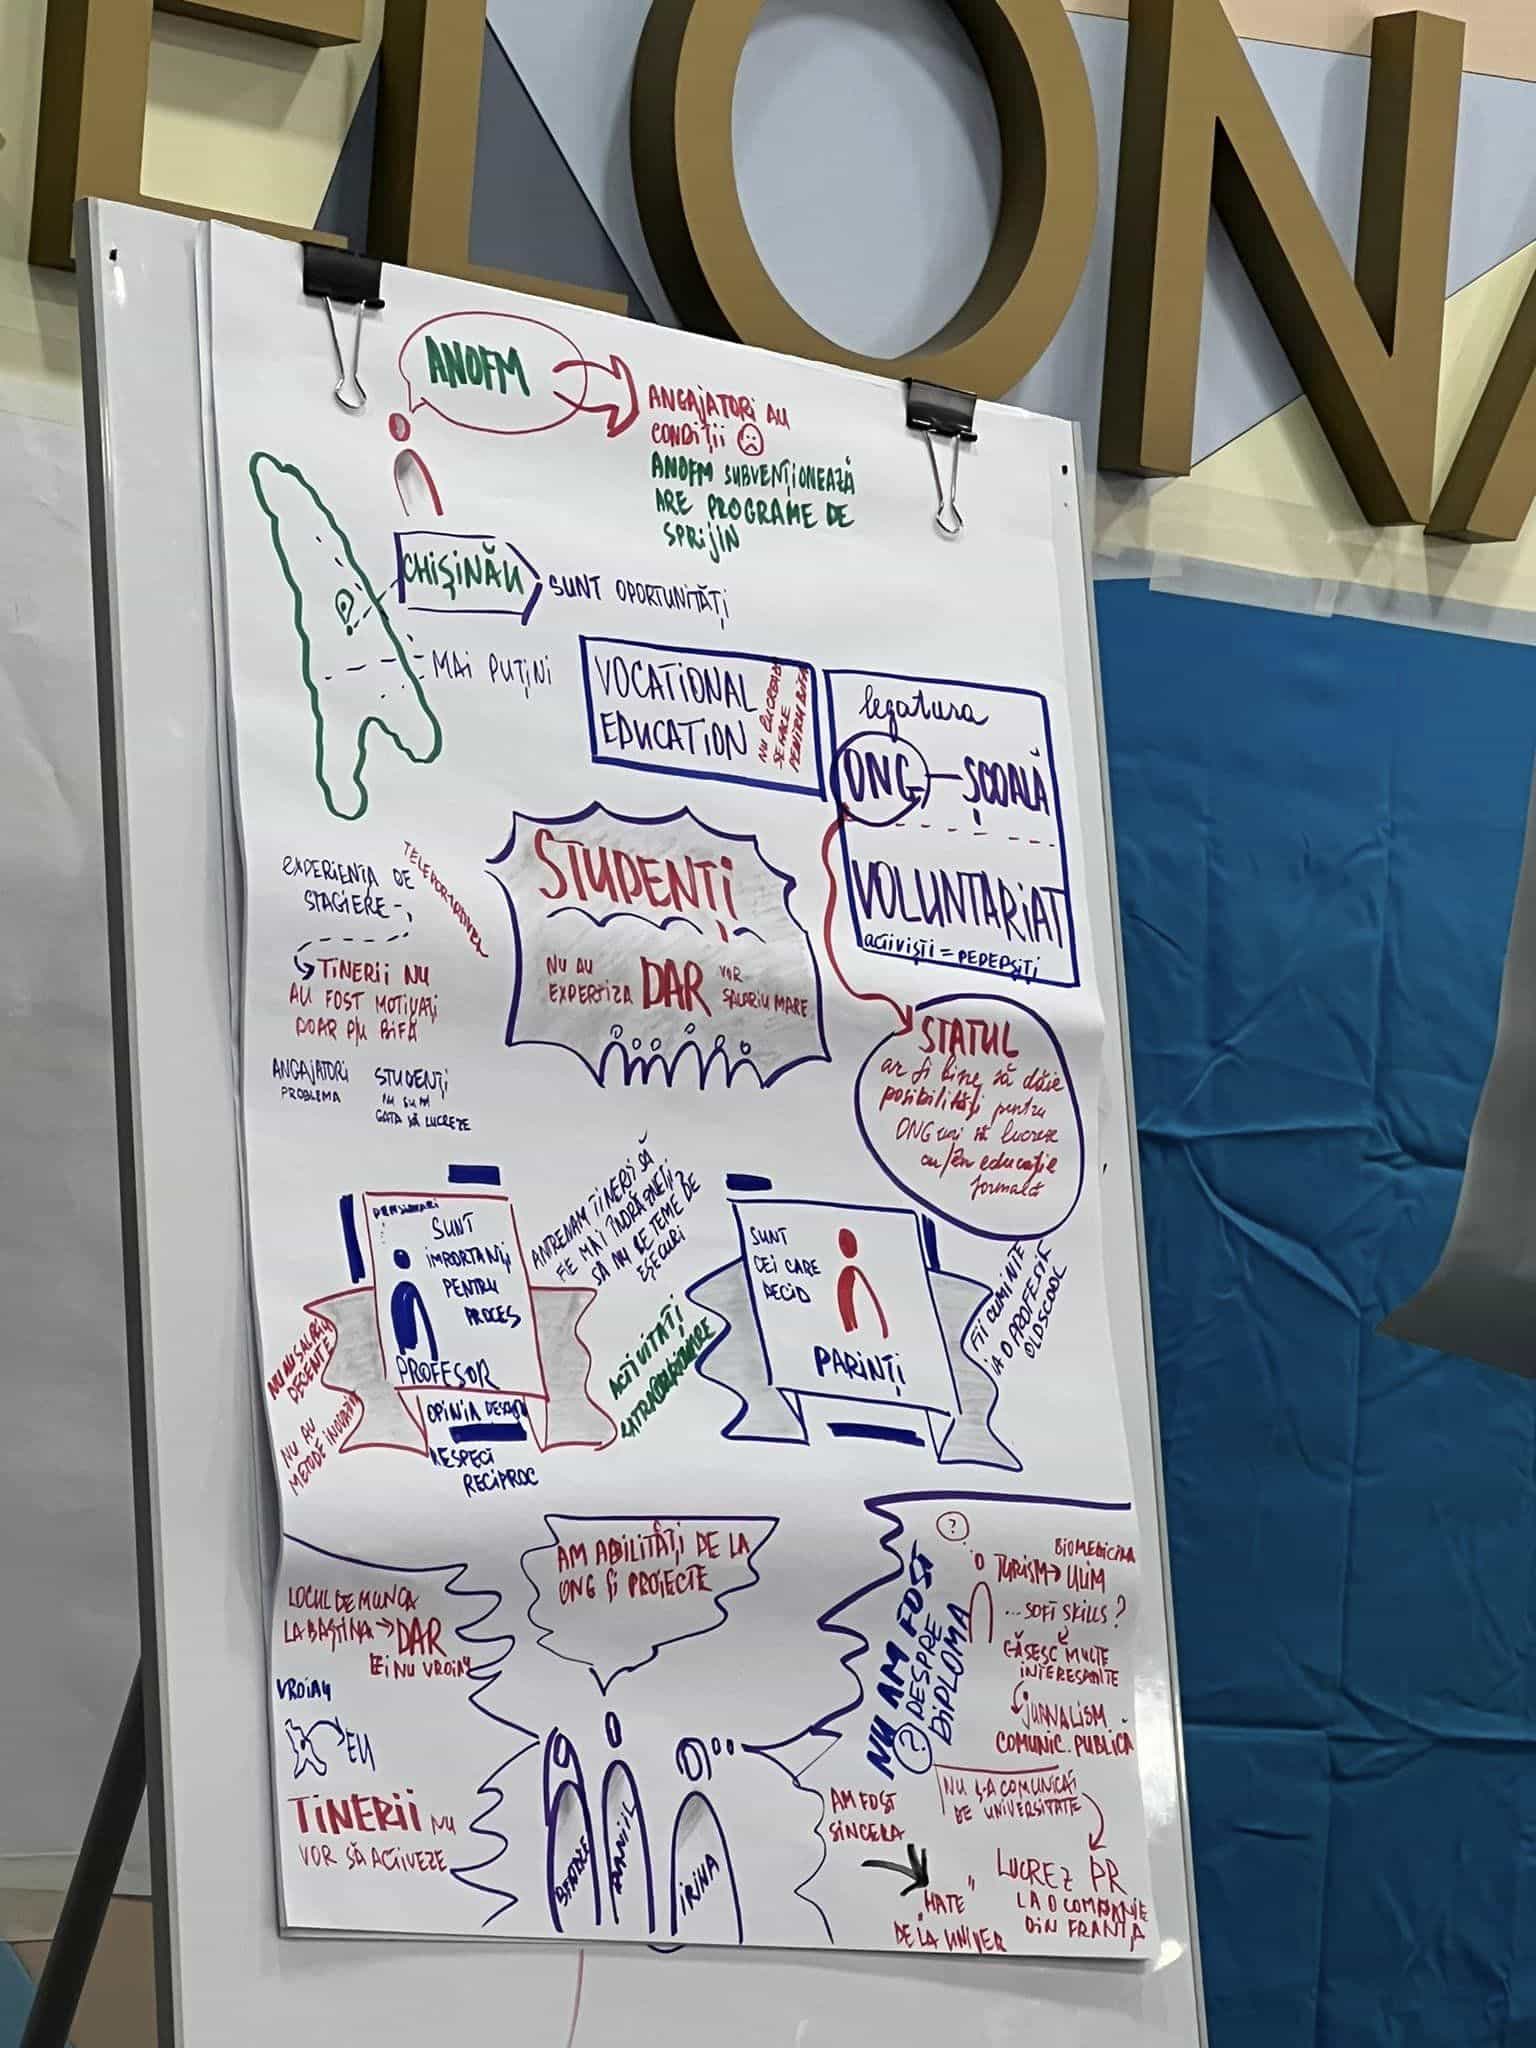 ANOFM
ANGAJATORI AU
CONDIȚII
ANOFM SUBVENȚIONEAZĂ
ARE PROGRAME DE
SPRIJIN
CHIȘINĂU
SUNT OPORTUNITĂȚI
MAI PUȚINI
VOCATIONAL
EDUCATION
NU LUCREAZĂ
SE FACE
PENTRU BIFĂ
legatura
ONG - ȘCOALĂ
VOLUNTARIAT
activiști = PEDEPSIȚI
EXPERIENȚA DE
STAGIERE -
TINERII NU
AU FOST MOTIVAȚI
DOAR P/U BIFĂ
ANGAJATORI
PROBLEMA
STUDENȚI
NU SUNT
GATA SĂ LUCREZE
STUDENȚI
NU AU
EXPERTIZA
DAR
VOR
SALARIU MARE
STATUL
ar fi bine să dăie
posibilități pentru
ONG-uri să lucreze
cu/în educație
formală
PENSIONARI
SUNT
IMPORTANȚI
PENTRU
PROCES
PROFESOR
OPINIA
RESPECT
RECIPROC
NU AU SALARIU
DECENTE
NU AU
METODE INOVATIV
ANTRENAM TINERII SĂ
FIE MAI ÎNDRĂZNEȚI
SĂ NU SE TEME DE
EȘECURI
ACTIVITĂȚI
SUNT
CEI CARE
DECID
PARINȚI
FII CUMINTE
IA O PROFESIE
OLDSCOOL
LOCUL DE MUNCA
LA BAȘTINA → DAR
EI NU VROIAU
VROIAU
EU
TINERII NU
VOR SĂ ACTIVEZE
AM ABILITĂȚI DE LA
ONG ȘI PROIECTE
DANIIL
IRINA
NU AM FOST
DESPRE
DIPLOMA
?
?
BIOMEDICINA
TURISM → ULIM
... SOFT SKILLS?
GĂSESC MULTE
INTERESANTE
JURNALISM
COMUNIC. PUBLICĂ
NU S-A COMUNICAT
DE UNIVERSITATE
AM FOST
SINCERA
"HATE"
DE LA UNIVER
LUCREZ PR
LA O COMPANIE
DIN FRANȚA